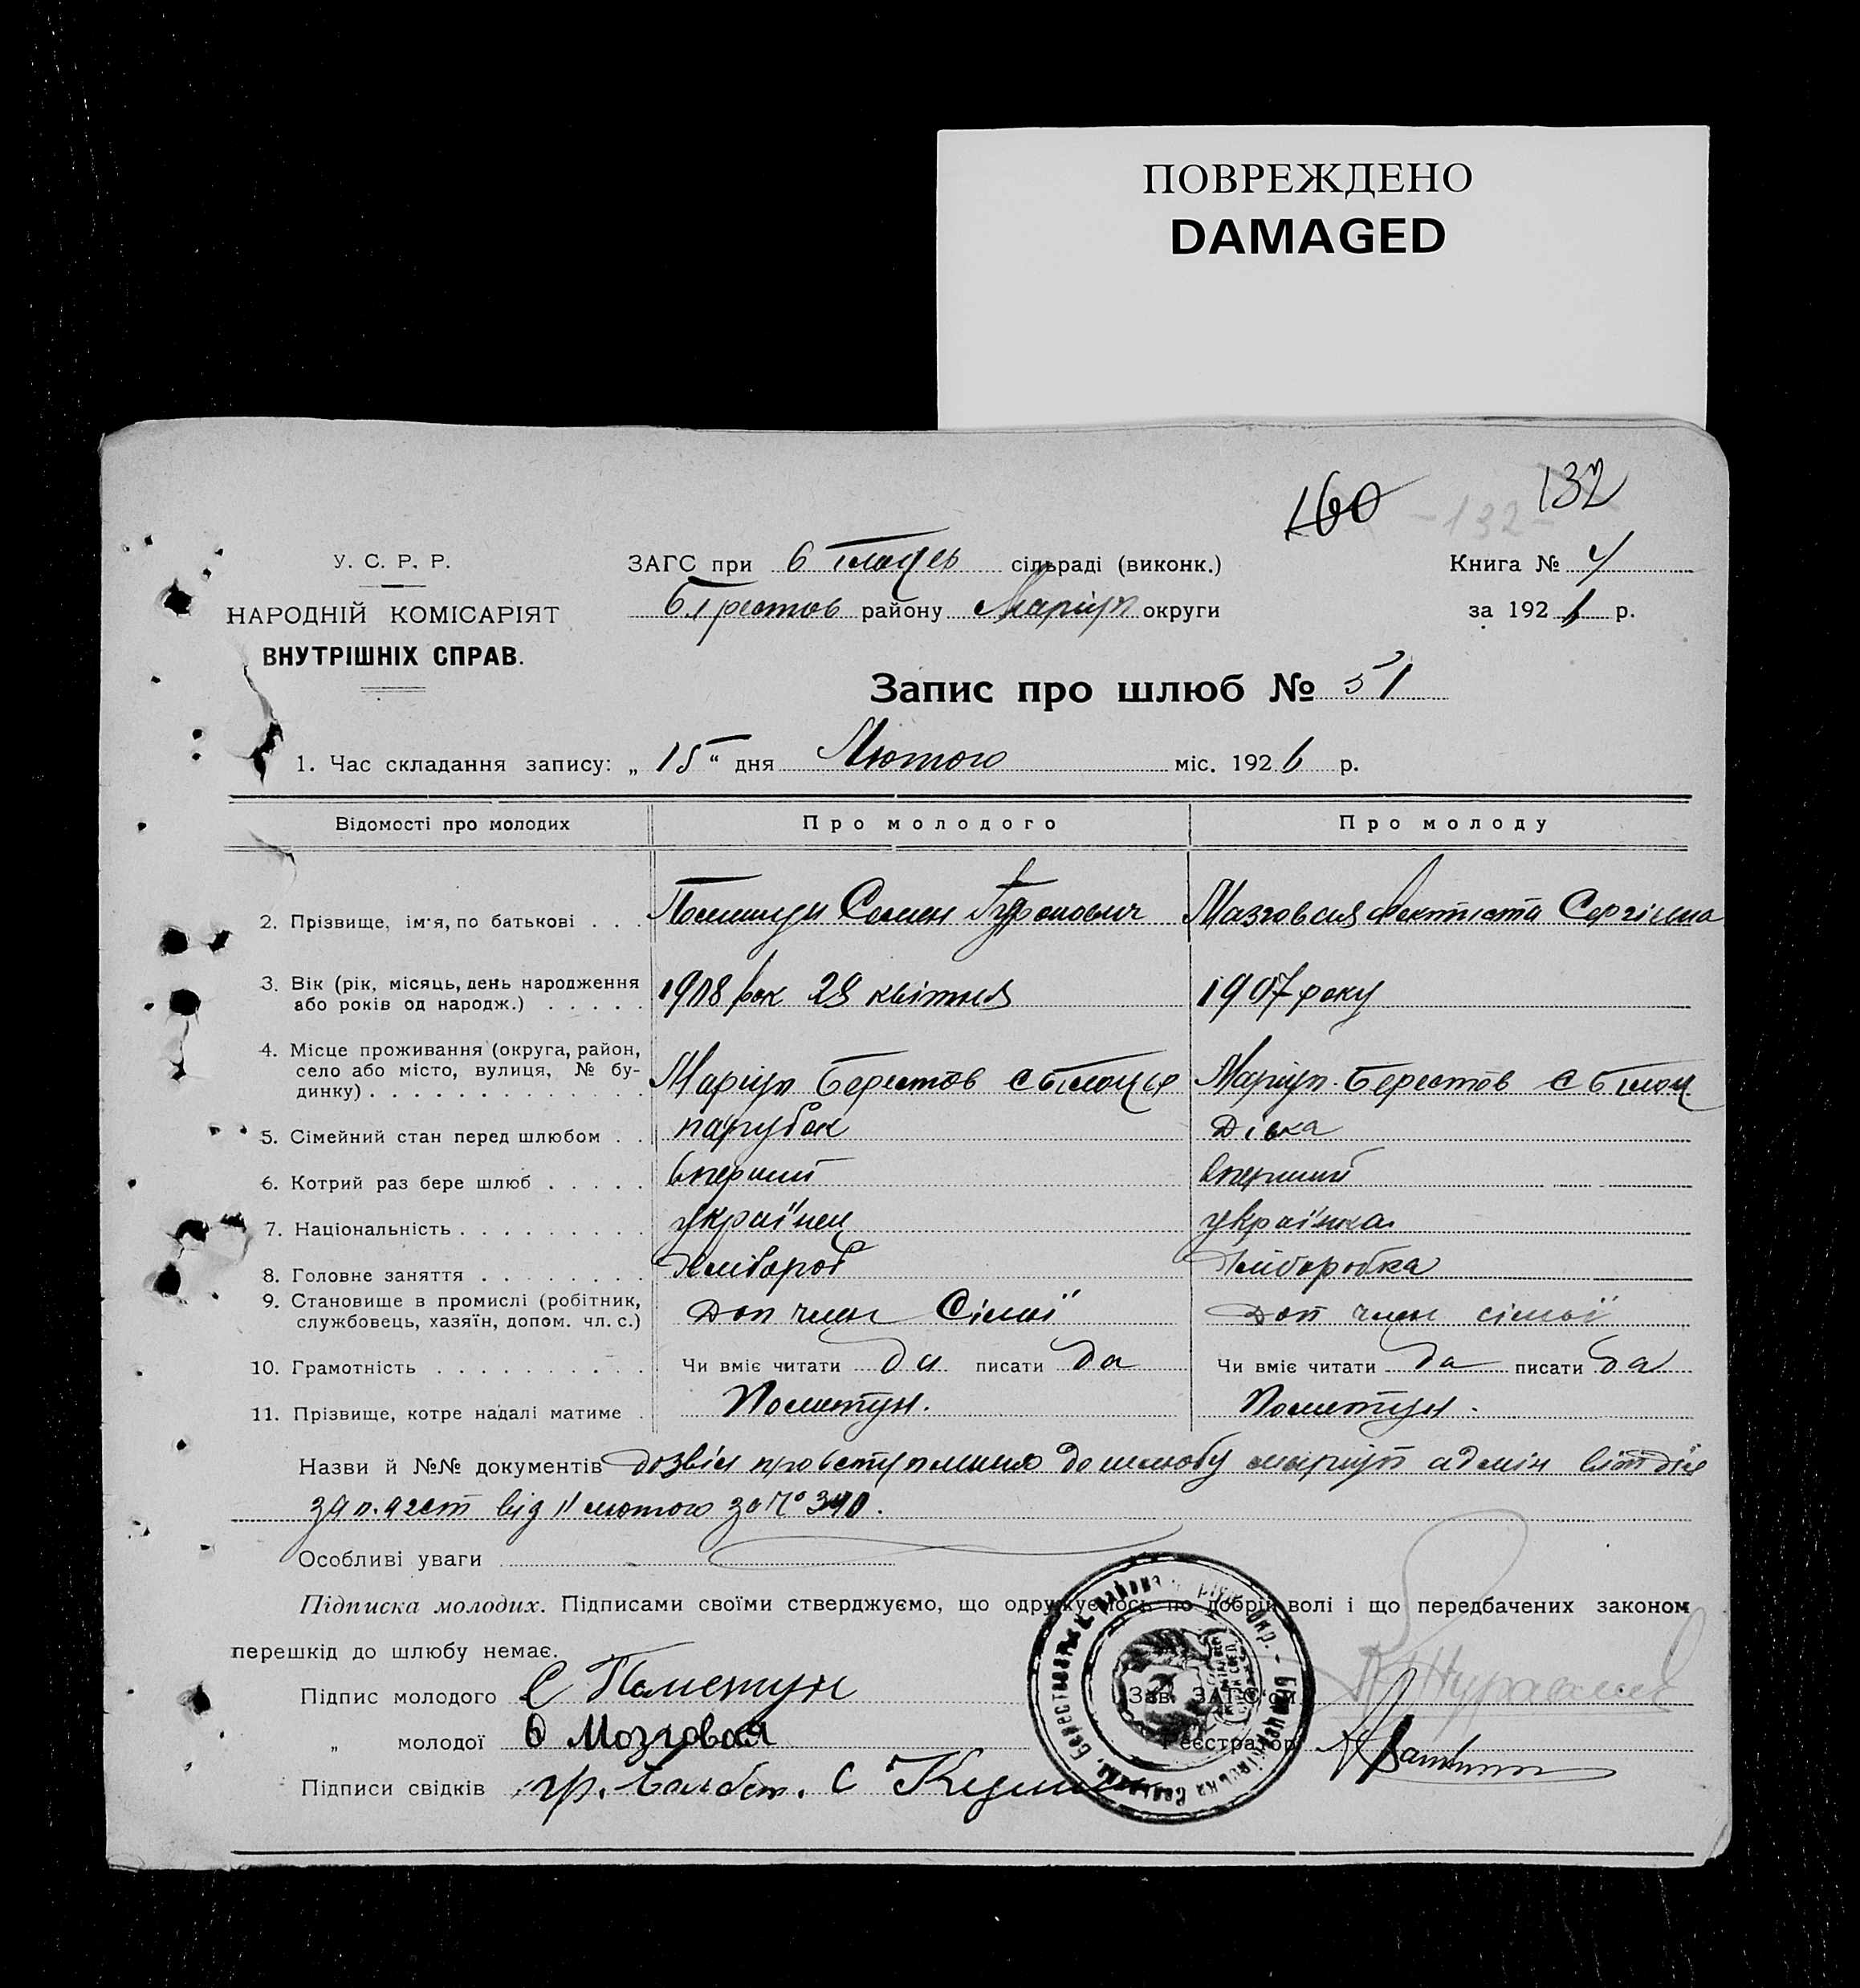 ПОВРЕЖДЕНО
DAMAGED
160 132
-132-
У. С. Р. Р. ЗАГС при сільраді (виконк.) Книга № 4
НАРОДНІЙ КОМІСАРІЯТ району Маріуп округи за 1926 р.
ВНУТРІШНІХ СПРАВ.
Запис про шлюб № 51
1. Час складання запису: „ 15 " дня Лютого міс. 1926 р.
Відомості про молодих Про молодого Про молоду
2. Прізвище, ім'я, по батькові . . . Семен Мазговая Сергіевна
3. Вік (рік, місяць, день народження
або років од народж.) . . . . . 1908 рок 28 квітня 1907 року
4. Місце проживання (округа, район,
село або місто, вулиця, № бу-
динку) . . . . . . . . . . . . . Маріуп Берестов с Маріуп. Берестов с
5. Сімейний стан перед шлюбом . . парубок Дівка
6. Котрий раз бере шлюб . . . . . вперший вперший
7. Національність . . . . . . . . . українец українка
8. Головне заняття . . . . . . . . Хлібороб Хліборобка
9. Становище в промислі (робітник,
службовець, хазяїн, допом. чл. с.) Доп член Сімьї Доп член сімьї
10. Грамотність . . . . . . . . . . Чи вміє читати да писати да Чи вміє читати да писати да
11. Прізвище, котре надалі матиме . Пометун. Пометун.
Назви й №№ документів дозвіл про вступлення до шлюбу маріуп адмін
від 11 лютого за № 340.
Особливі уваги
Підписка молодих. Підписами своїми стверджуємо, що одружуємось по добрій волі і що передбачених законом
перешкід до шлюбу немає.
Підпис молодого С Пометун Зав. ЗАГС'ом
„ молодої Ѳ Мозговая Реєстратор
Підписи свідків гр.